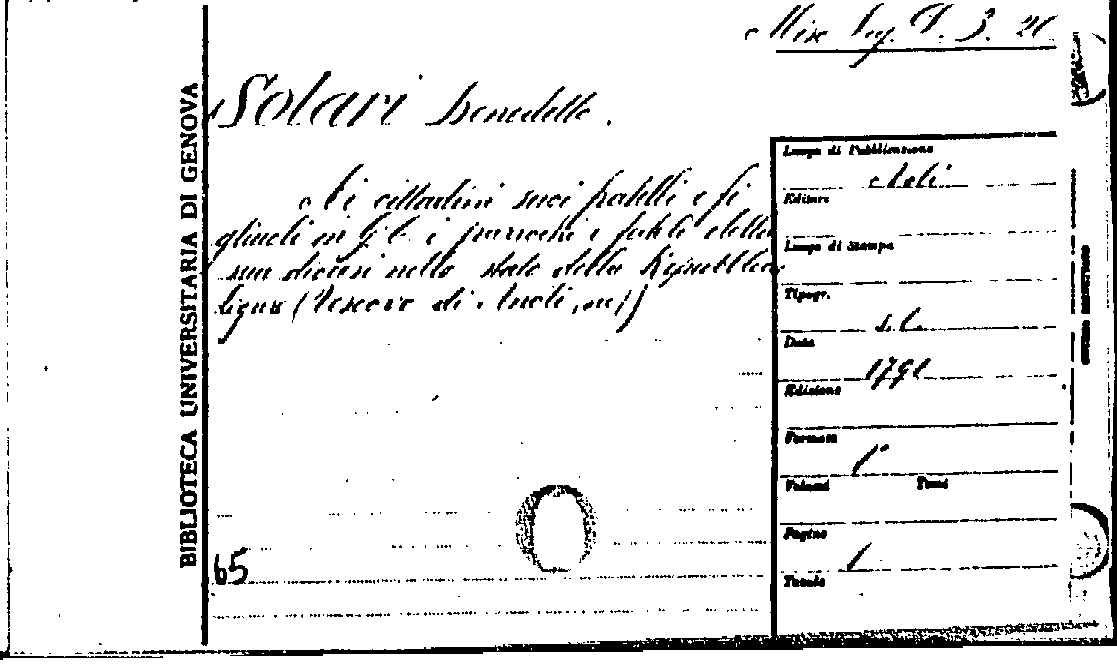 Misc Leg. D. 3. 21
BIBLIOTECA UNIVERSITARIA DI GENOVA
Solari Benedetto.
Ai cittadini suoi fratelli e fi
gliuoli in G. C. i parrochi e fedeli della
sua diocesi nello stato della Repubblica
ligure (Vescovo di Noli, ecc)
Luogo di Pubblicazione
Noli
Editore
Luogo di Stampa
Tipogr.
Data
1791
Edizione
Formato
Volumi Tomi
Pagine
1
Tavole
65